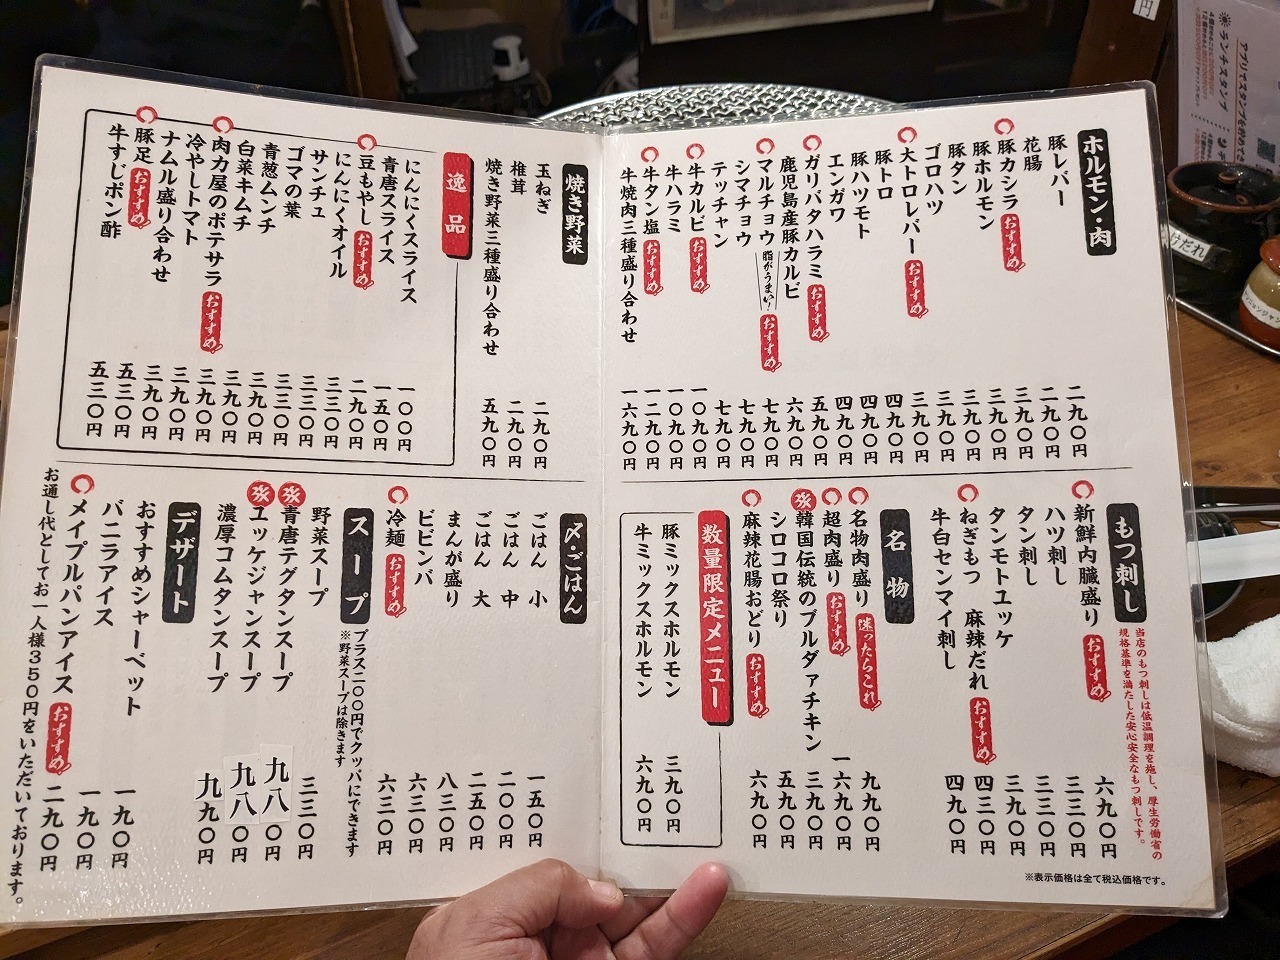 ホルモン・肉
豚レバー 二九〇円
花腸 二九〇円
豚カシラ おすすめ 三九〇円
豚ホルモン 三九〇円
豚タン 三九〇円
ゴロハツ 三九〇円
大トロレバー おすすめ 三九〇円
豚トロ 四九〇円
豚ハツモト 四九〇円
エンガワ 四九〇円
ガリバタハラミ おすすめ 五九〇円
鹿児島産豚カルビ 六九〇円
マルチョウ 脂がうまい! おすすめ 七九〇円
シマチョウ 七九〇円
テッチャン 七九〇円
牛カルビ おすすめ 一〇九〇円
牛ハラミ 一〇九〇円
牛タン塩 おすすめ 一二九〇円
牛焼肉三種盛り合わせ 一六九〇円
焼き野菜
玉ねぎ 二九〇円
椎茸 二九〇円
焼き野菜三種盛り合わせ 五九〇円
逸品
にんにくスライス 一〇〇円
青唐スライス 一五〇円
豆もやし おすすめ 二九〇円
にんにくオイル 三三〇円
サンチュ 三三〇円
ゴマの葉 三三〇円
青葱ムンチ 三九〇円
白菜キムチ 三九〇円
肉力屋のポテサラ おすすめ 三九〇円
冷やしトマト 三九〇円
ナムル盛り合わせ 三九〇円
豚足 おすすめ 五三〇円
牛すじポン酢 五三〇円
もつ刺し
当店のもつ刺しは低温調理を施し、厚生労働省の
規格基準を満たした安心安全なもつ刺しです。
新鮮内臓盛り おすすめ 六九〇円
ハツ刺し 三三〇円
タン刺し 三三〇円
タンモトユッケ 三九〇円
ねぎもつ 麻辣だれ おすすめ 四三〇円
牛白センマイ刺し 四九〇円
名物
名物肉盛り 迷ったらこれ 九九〇円
超肉盛り おすすめ 一六九〇円
韓国伝統のブルダァチキン 三九〇円
シロコロ祭り 五九〇円
麻辣花腸おどり おすすめ 六九〇円
数量限定メニュー
豚ミックスホルモン 三九〇円
牛ミックスホルモン 六九〇円
※表示価格は全て税込価格です。
〆・ごはん
ごはん 小 一五〇円
ごはん 中 二〇〇円
ごはん 大 二五〇円
まんが盛り 八三〇円
ビビンバ 六三〇円
冷麺 おすすめ 六三〇円
スープ
プラス二〇〇円でクッパにできます
※野菜スープは除きます
野菜スープ 三三〇円
青唐テグタンスープ 九八〇円
ユッケジャンスープ 九八〇円
濃厚コムタンスープ 九九〇円
デザート
おすすめシャーベット 一九〇円
バニラアイス 一九〇円
メイプルパンアイス おすすめ 二九〇円
お通し代としてお一人様350円をいただいております。
円
ランチスタンプ